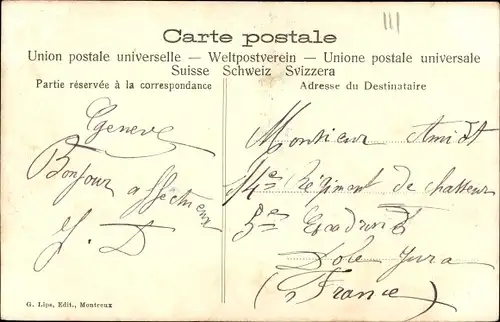 Carte postale
Union postale universelle — Weltpostverein — Unione postale universale
Suisse Schweiz Svizzera
Partie réservée à la correspondance
Adresse du Destinataire
Genève
Bonjour
affectueux
J. D
Monsieur Amidt
14e Régiment de chasseur
5e Escadron
Dole Jura
(France)
G. Lips, Edit., Montreux